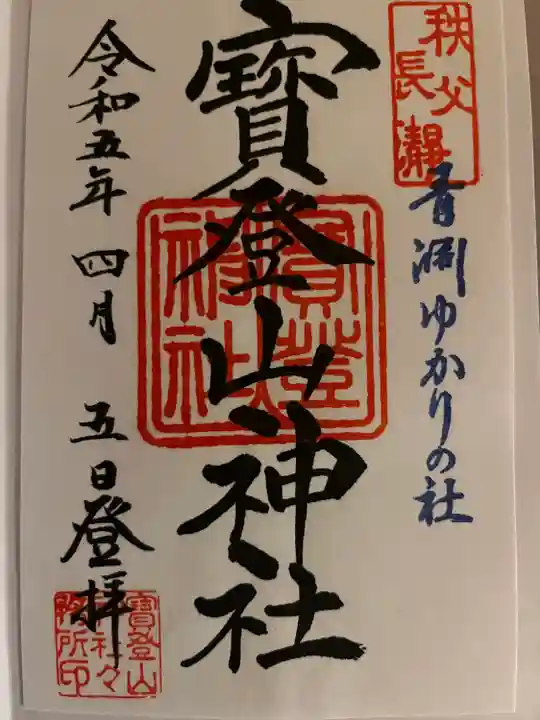 秩父
長瀞
青淵ゆかりの社
寳登山神社
寳登山
神社
令和五年 四月 五日登拝
寳登山
神社々
務所印